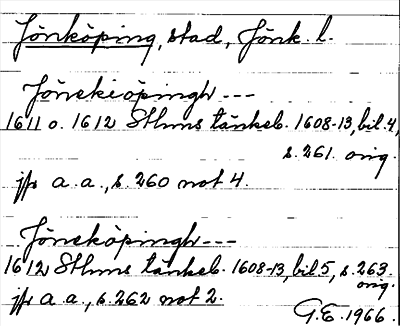 Jönköping, stad, Jönk. l.
Jönekiöpingh ---
1611 o. 1612 Sthms tänkeb. 1608-13, bil. 4,
s. 261. orig.
jfr a. a., s. 260 not 4.
Jöneköpingh ---
1612 Sthms tänkeb. 1608-13, bil 5, s. 263.
orig.
jfr a. a., s. 262 not 2.
G.E. 1966.